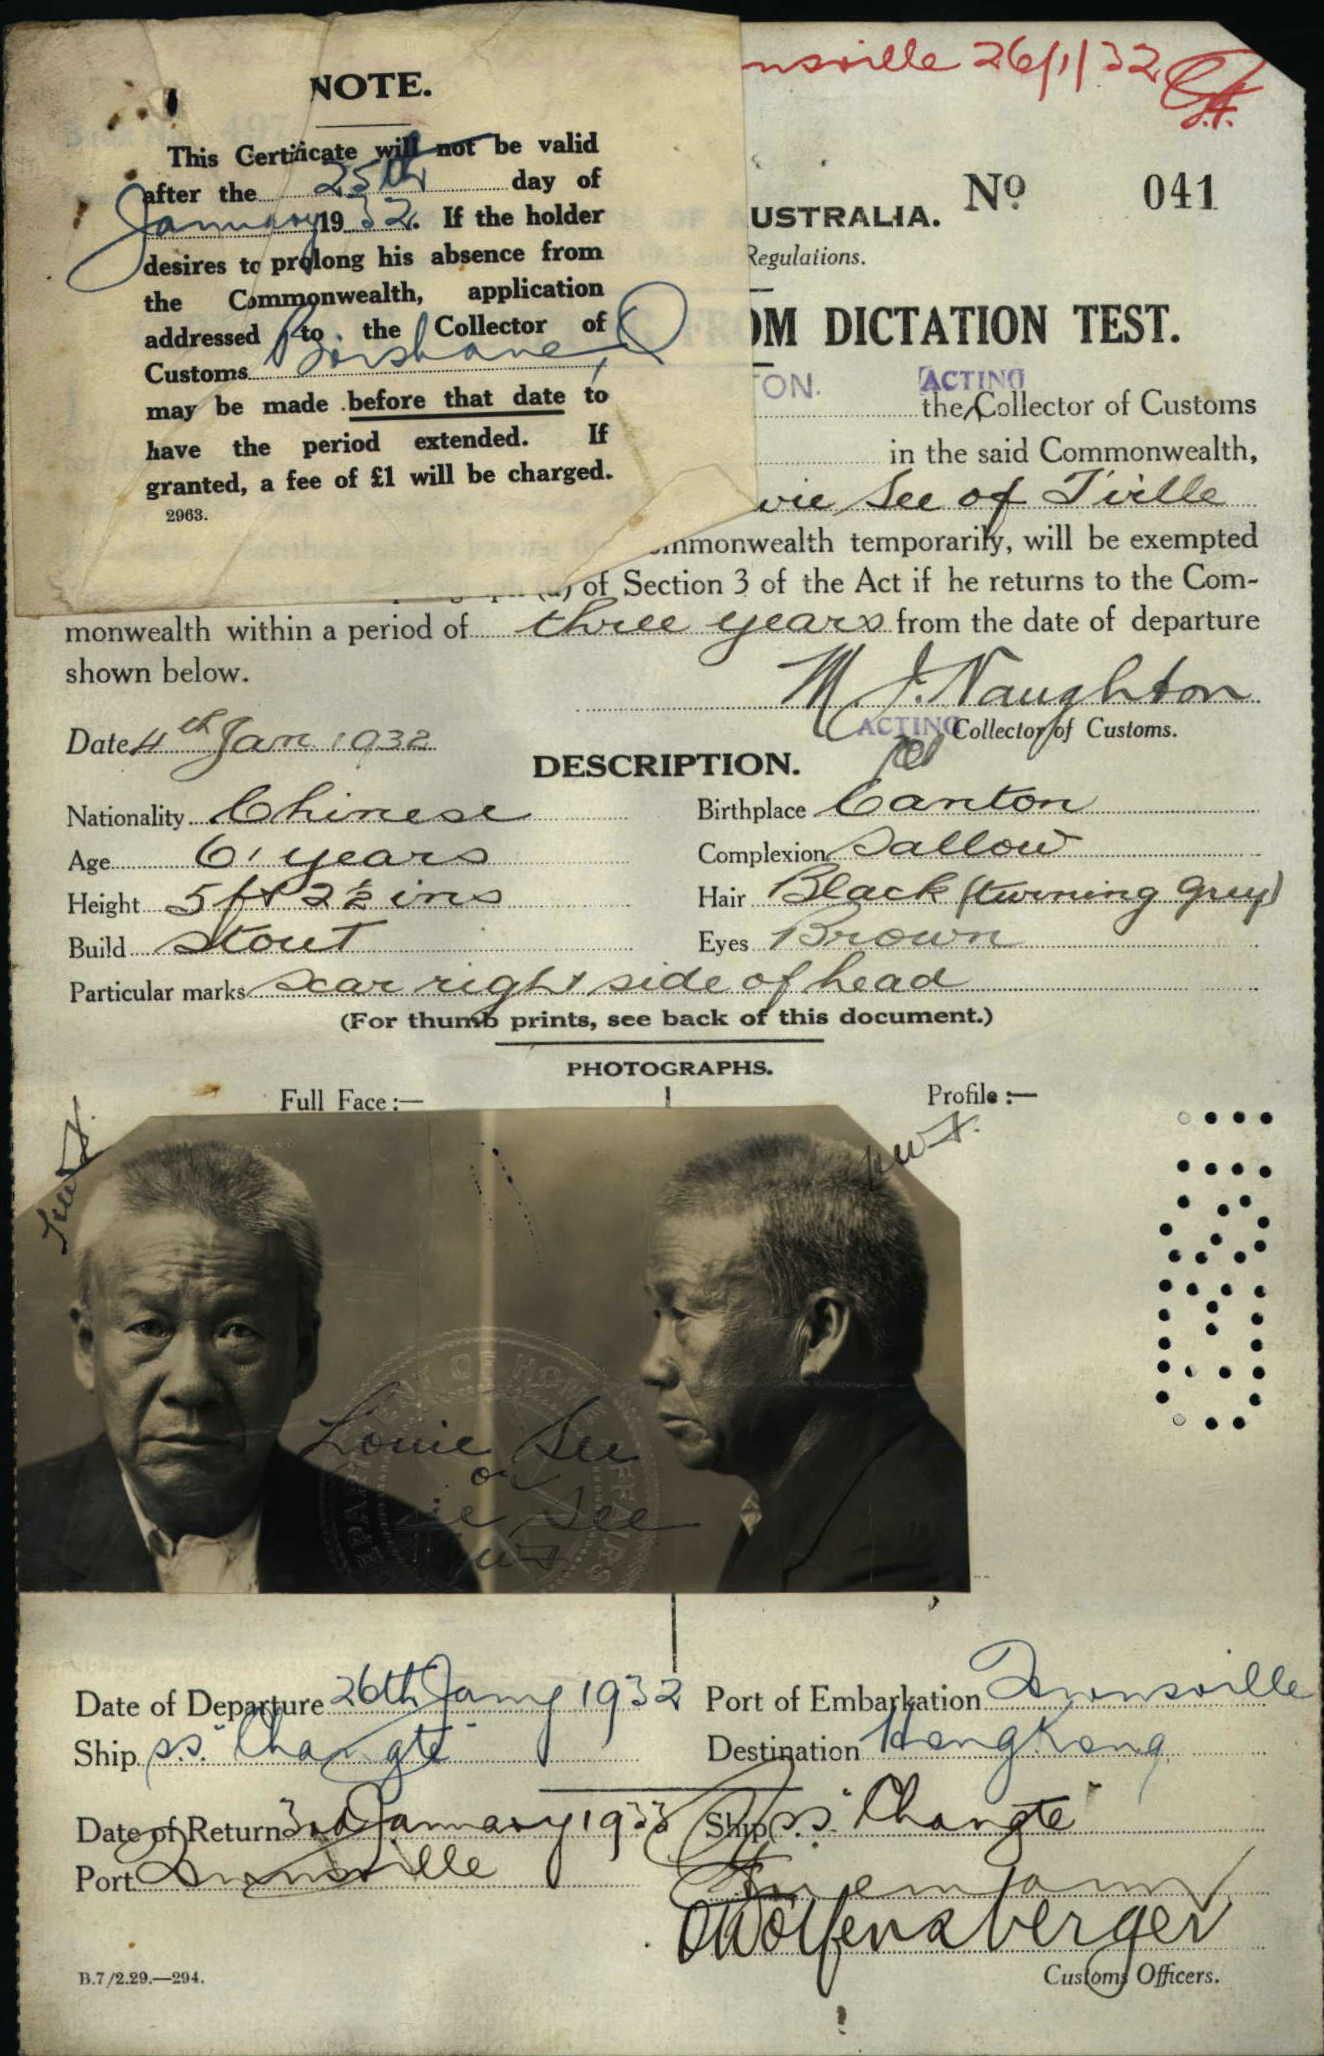 NOTE.
This Certificate will not be valid
after the 25th day of
January 1932. If the holder
desires to prolong his absence from
the Commonwealth, application
addressed to the Collector of
Customs Brisbane
may be made before that date to
have the period extended. If
granted, a fee of £1 will be charged.
2963.
nsville 26/1/32
No 041
USTRALIA.
Regulations.
OM DICTATION TEST.
TON. ACTING
the Collector of Customs
in the said Commonwealth,
uie See of T'ville
mmonwealth temporarily, will be exempted
(a) of Section 3 of the Act if he returns to the Com-
monwealth within a period of three years from the date of departure
shown below.
M J. Naughton
ACTING Collector of Customs.
Date 4th Jan 1932
DESCRIPTION.
Nationality Chinese Birthplace Canton
Age 61 years Complexion Sallow
Height 5 ft 2½ ins Hair Black (turning grey)
Build Stout Eyes Brown
Particular marks Scar right side of head
(For thumb prints, see back of this document.)
PHOTOGRAPHS.
Full Face :— Profile :—
Louie See
or
ie See
Date of Departure 26th Jany 1932 Port of Embarkation Townsville
Ship s.s. "Changte" Destination Hong Kong
Date of Return 3rd January 1933 Ship s.s. "Changte"
Port Townsville
Wolfensberger
Customs Officers.
B.7/2.29.—294.